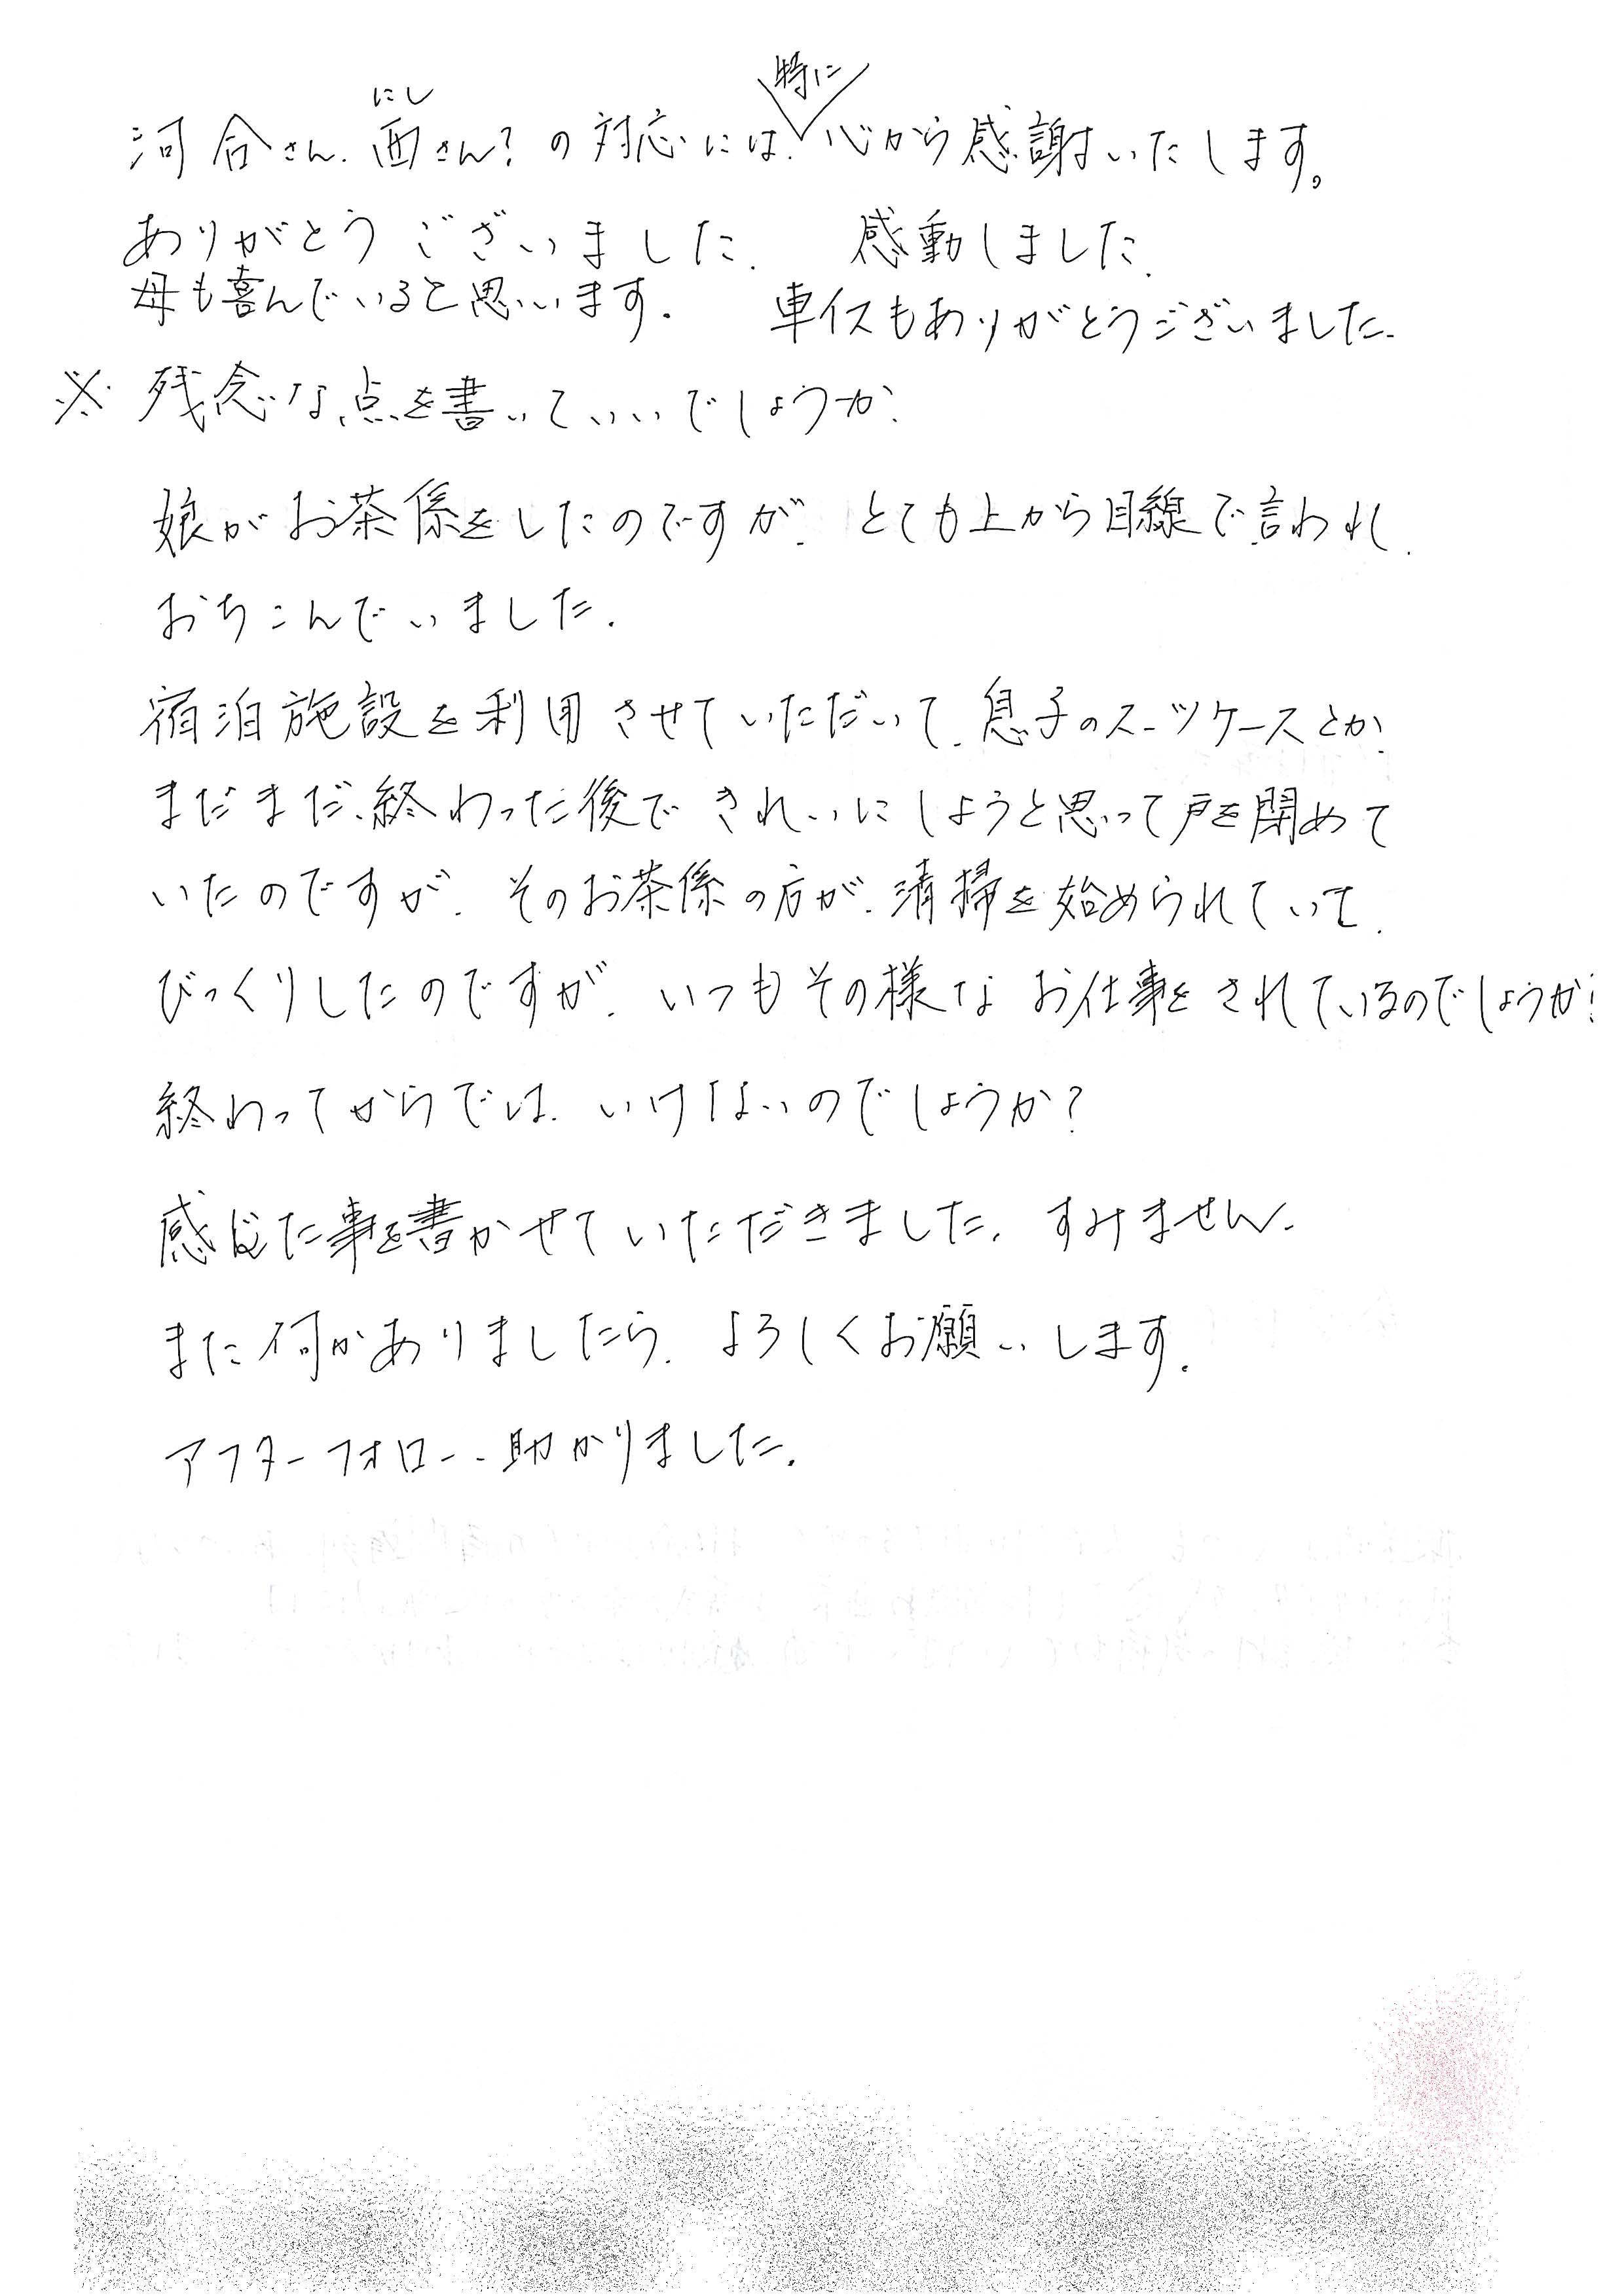 にし
特に
河合さん、西さん?の対応には、心から感謝いたします。
ありがとうございました。 感動しました。
母も喜んでいると思います。 車イスもありがとうございました。
※ 残念な点を書いていいでしょうか。
娘がお茶係をしたのですが、とても上から目線で言われ、
おちこんでいました。
宿泊施設を利用させていただいて、息子のスーツケースとか、
まだまだ、終わった後できれいにしようと思って戸を閉めて
いたのですが、そのお茶係の方が、清掃を始められていて、
びっくりしたのですが、いつもその様なお仕事をされているのでしょうか!
終わってからでは、いけないのでしょうか?
感じた事を書かせていただきました。すみません。
また何かありましたら、よろしくお願いします。
アフターフォロー、助かりました。